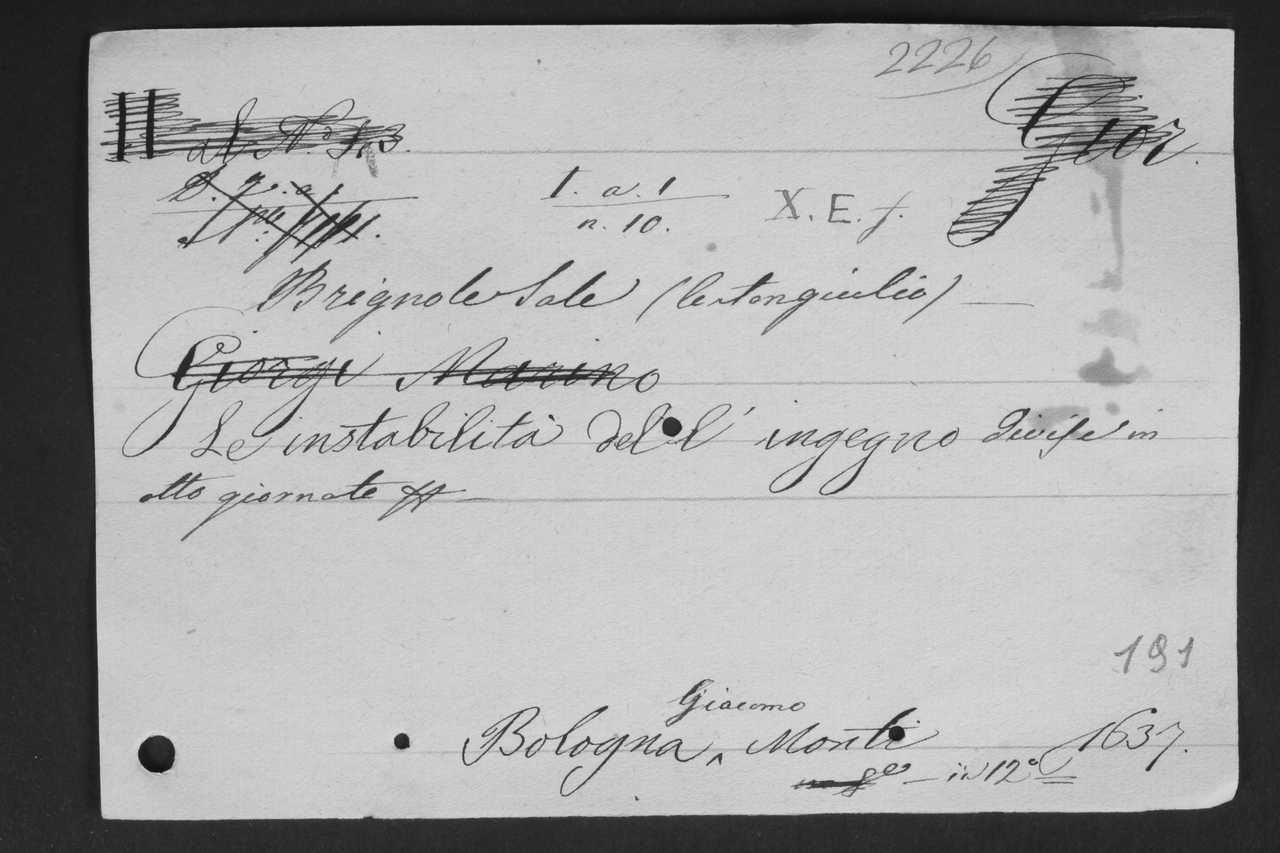 2226
II al N.º 1,3. Gior.
1. a. 1 X. E. f.
n. 10.
Brignole Sale (Antongiulio) —
Giorgi Marino
Le instabilità dell' ingegno divise in
otto giornate
191
Giacomo
Bologna, Monti 1637.
in 8º — in 12º